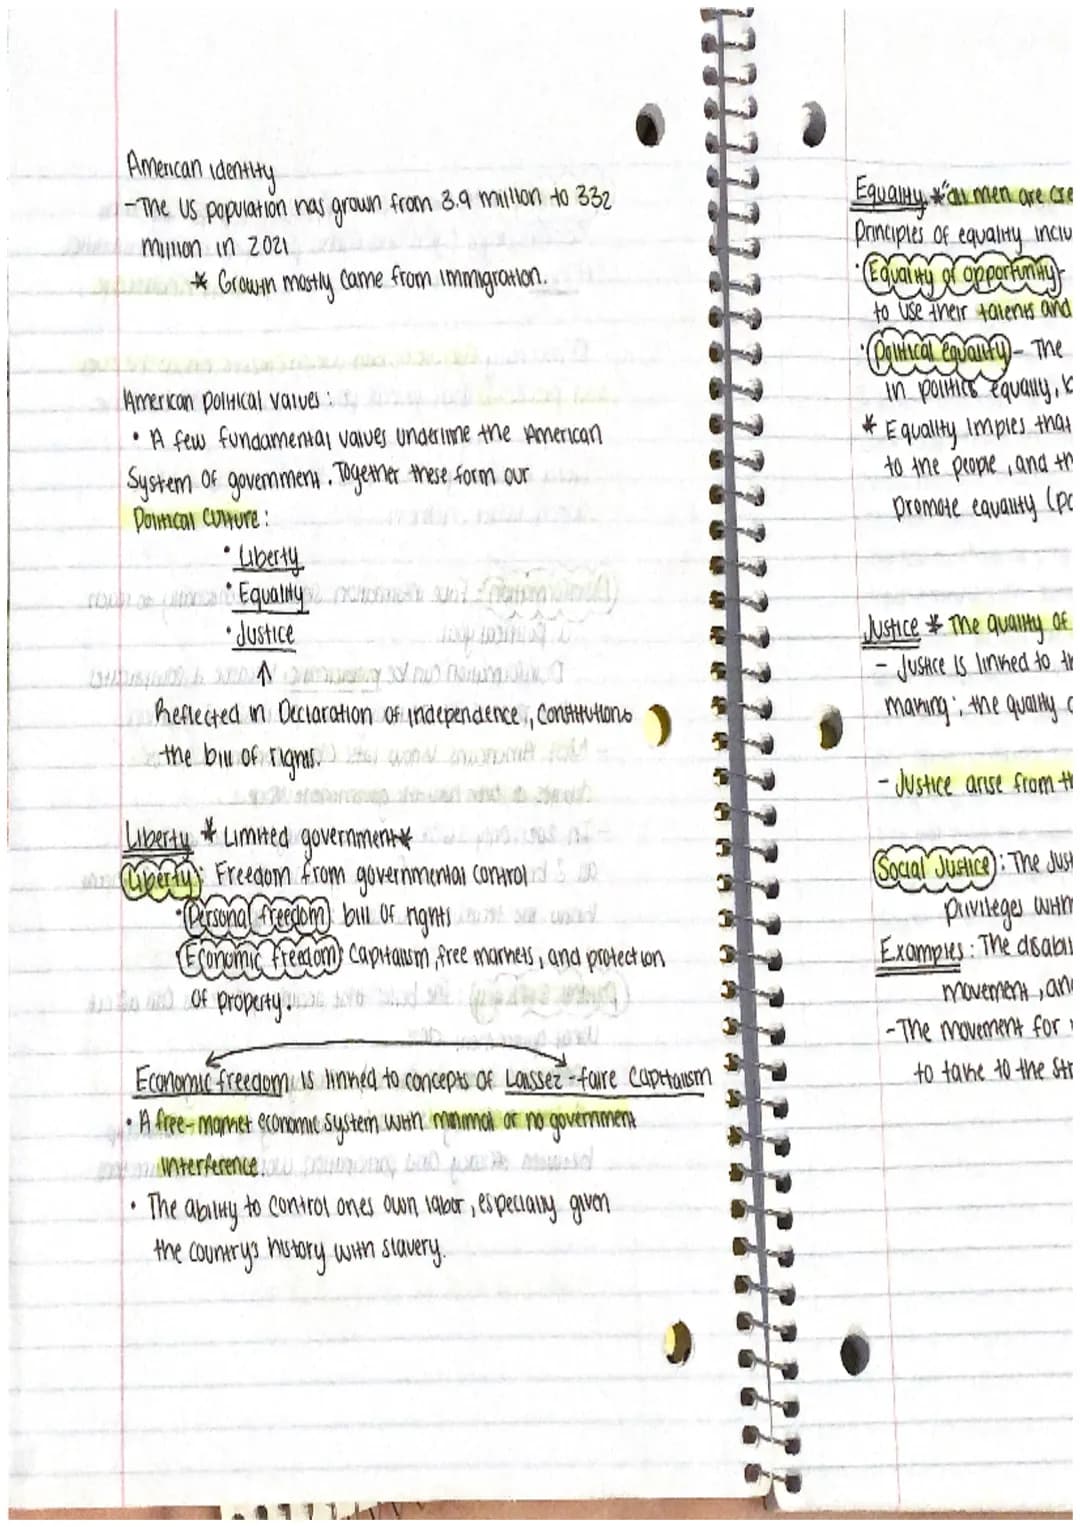 American identity
-The US population has grown from 3.9 million to 332
million in 2021
* Growth mostly came from immigration.
American political values:
• A few fundamental values underline the American
System of government. Together these form our
Political Culture:
• Liberty
• Equality
• Justice
↑
Reflected in Declaration of independence, Constitution &
the bill of rights.
Liberty * Limited government*
Liberty: Freedom from governmental control
• Personal freedom: bill of rights
• Economic freedom: Capitalism, free markets, and protection
of property.
Economic freedom is linked to concepts of Laissez-faire Capitalism
• A free-market economic system with minimal or no government
interference.
• The ability to control ones own labor, especially given
the country's history with slavery.
Equality * "all men are cre
Principles of equality inclu
• Equality of opportunity-
to use their talents and
• Political equality - The
in politics equally,
* Equality implies that
to the people, and th
promote equality (po
Justice * The quality of
- Justice is linked to th
making: the quality o
- Justice arise from th
Social Justice: The Just
privileges with
Examples: The disabil
movement, an
-The movement for
to take to the str